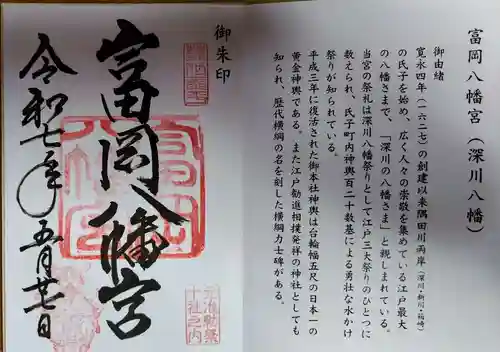 富岡八幡宮（深川八幡）
御由緒
寛永四年（一六二七）の創建以来隅田川両岸（深川・新川・箱崎）
の氏子を始め、広く人々の崇敬を集めている江戸最大
の八幡さまで、「深川の八幡さま」と親しまれている。
当宮の祭礼は深川八幡祭りとして江戸三大祭りのひとつに
数えられ、氏子町内神輿百二十数基による勇壮な水かけ
祭りが知られている。
平成三年に復活された御本社神輿は台輪幅五尺の日本一の
黄金神輿である。また江戸勧進相撲発祥の神社としても
知られ、歴代横綱の名を刻した横綱力士碑がある。
御朱印
富岡八幡宮
令和七年五月廿七日
十社之内